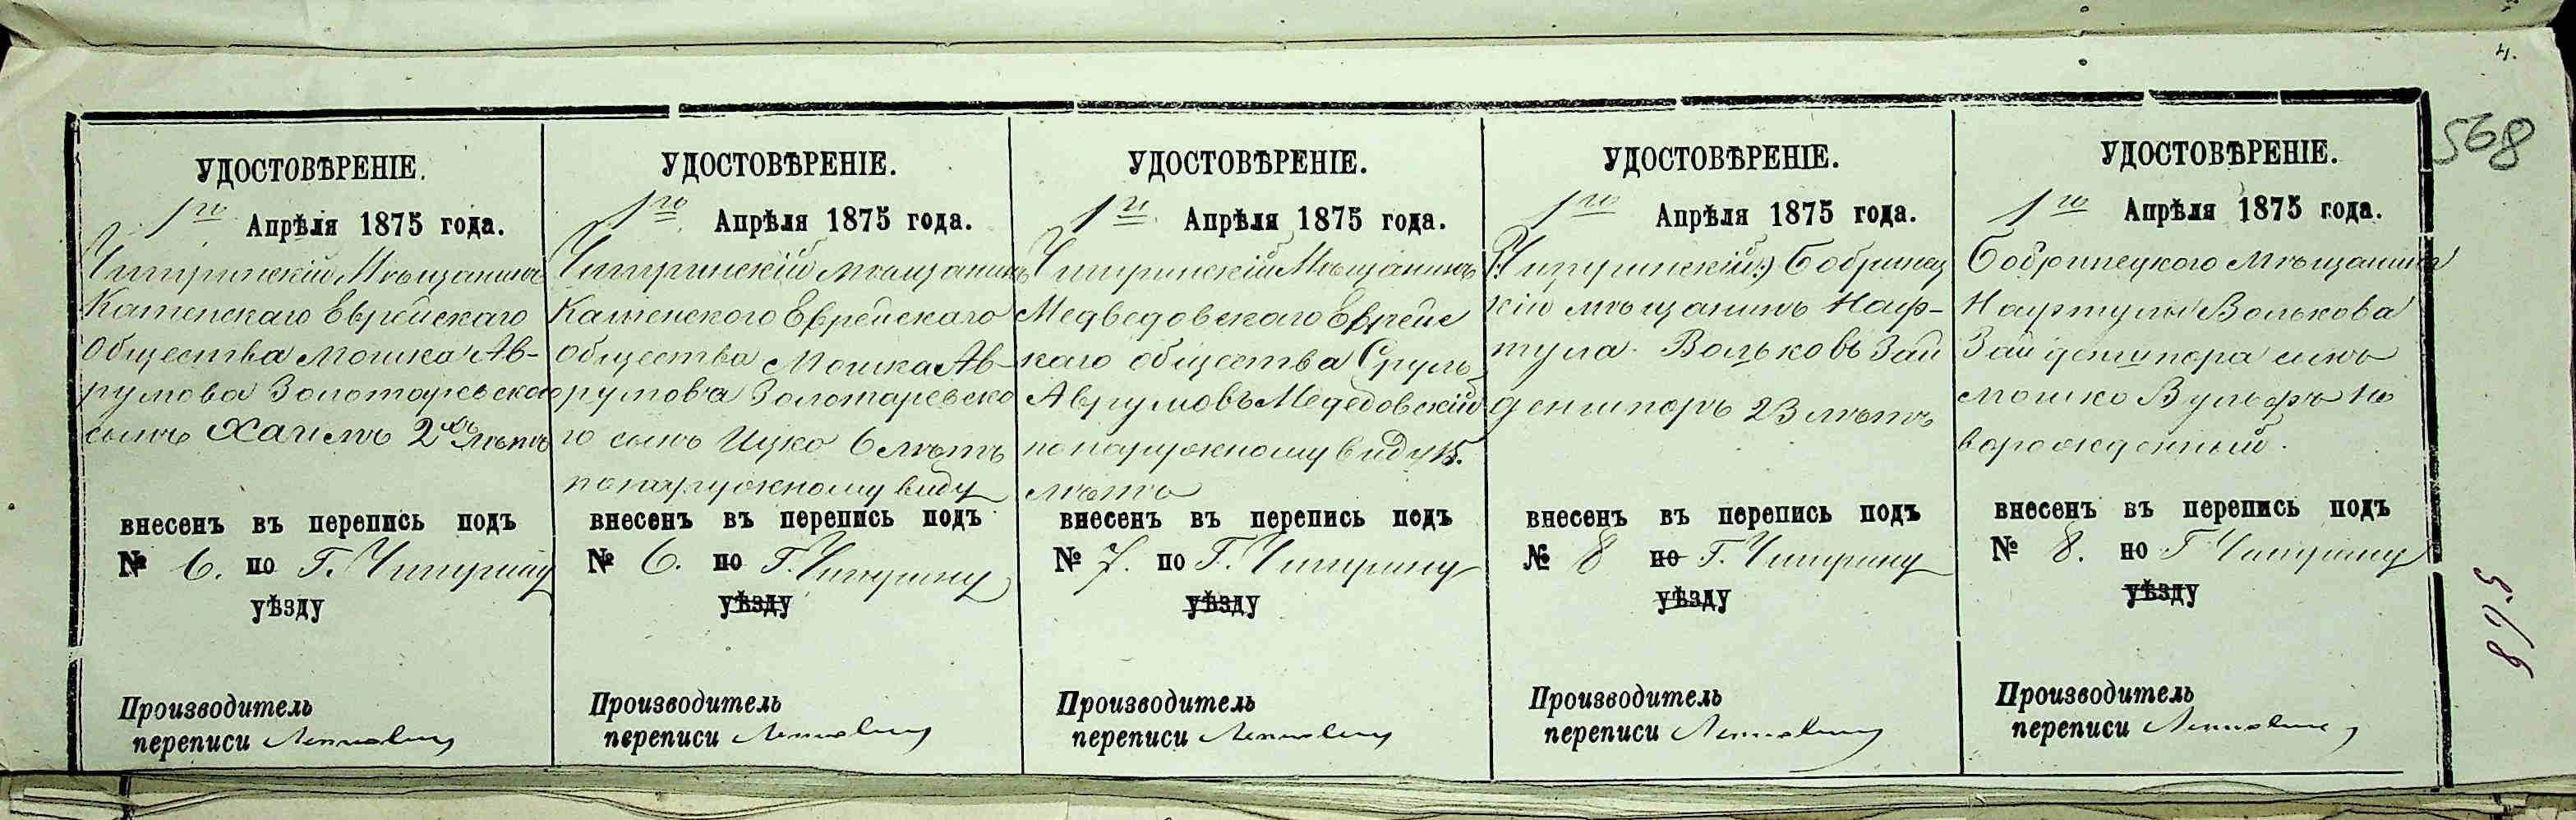 4.
568
УДОСТОВѢРЕНІЕ.
1го Апрѣля 1875 года.
Чигиринскій Мѣщанинъ
Каменскаго Еврейскаго
Общества Мошка Ав-
румова Золотаревскаго
сынъ Хаимъ 2хъ лѣтъ
внесенъ въ перепись подъ
№ 6. по Г. Чигирину
уѣзду
Производитель
переписи
УДОСТОВѢРЕНІЕ.
1го Апрѣля 1875 года.
Чигиринскій мѣщанинъ
Каменского Еврейскаго
общества Мошка Ав-
румова Золотаревско
го сынъ Ицко 6 лѣтъ
по наружному виду
внесенъ въ перепись подъ
№ 6. по Г. Чигирину
уѣзду
Производитель
переписи
УДОСТОВѢРЕНІЕ.
1го Апрѣля 1875 года.
Чигиринскій Мѣщанинъ
Медведовскаго Еврейс
каго общества Сруль
Аврумовъ Медедовскій
по наружному виду 15.
лѣтъ
внесенъ въ перепись подъ
№ 7. по Г. Чигирину
уѣзду
Производитель
переписи
УДОСТОВѢРЕНІЕ.
1го Апрѣля 1875 года.
(:Чигиринскій:) Бобринец
кій мѣщанинъ Наф-
тула Вольковъ Зай
деншноръ 23 лѣтъ
внесенъ въ перепись подъ
№ 8 по Г. Чигирину
уѣзду
Производитель
переписи
УДОСТОВѢРЕНІЕ.
1го Апрѣля 1875 года.
Бобринецкого Мѣщанина
Нафтулы Волькова
Зайденшнора сынъ
Мошко Вульфъ но
ворожденный.
внесенъ въ перепись подъ
№ 8. по Г. Чигирину
уѣзду
Производитель
переписи